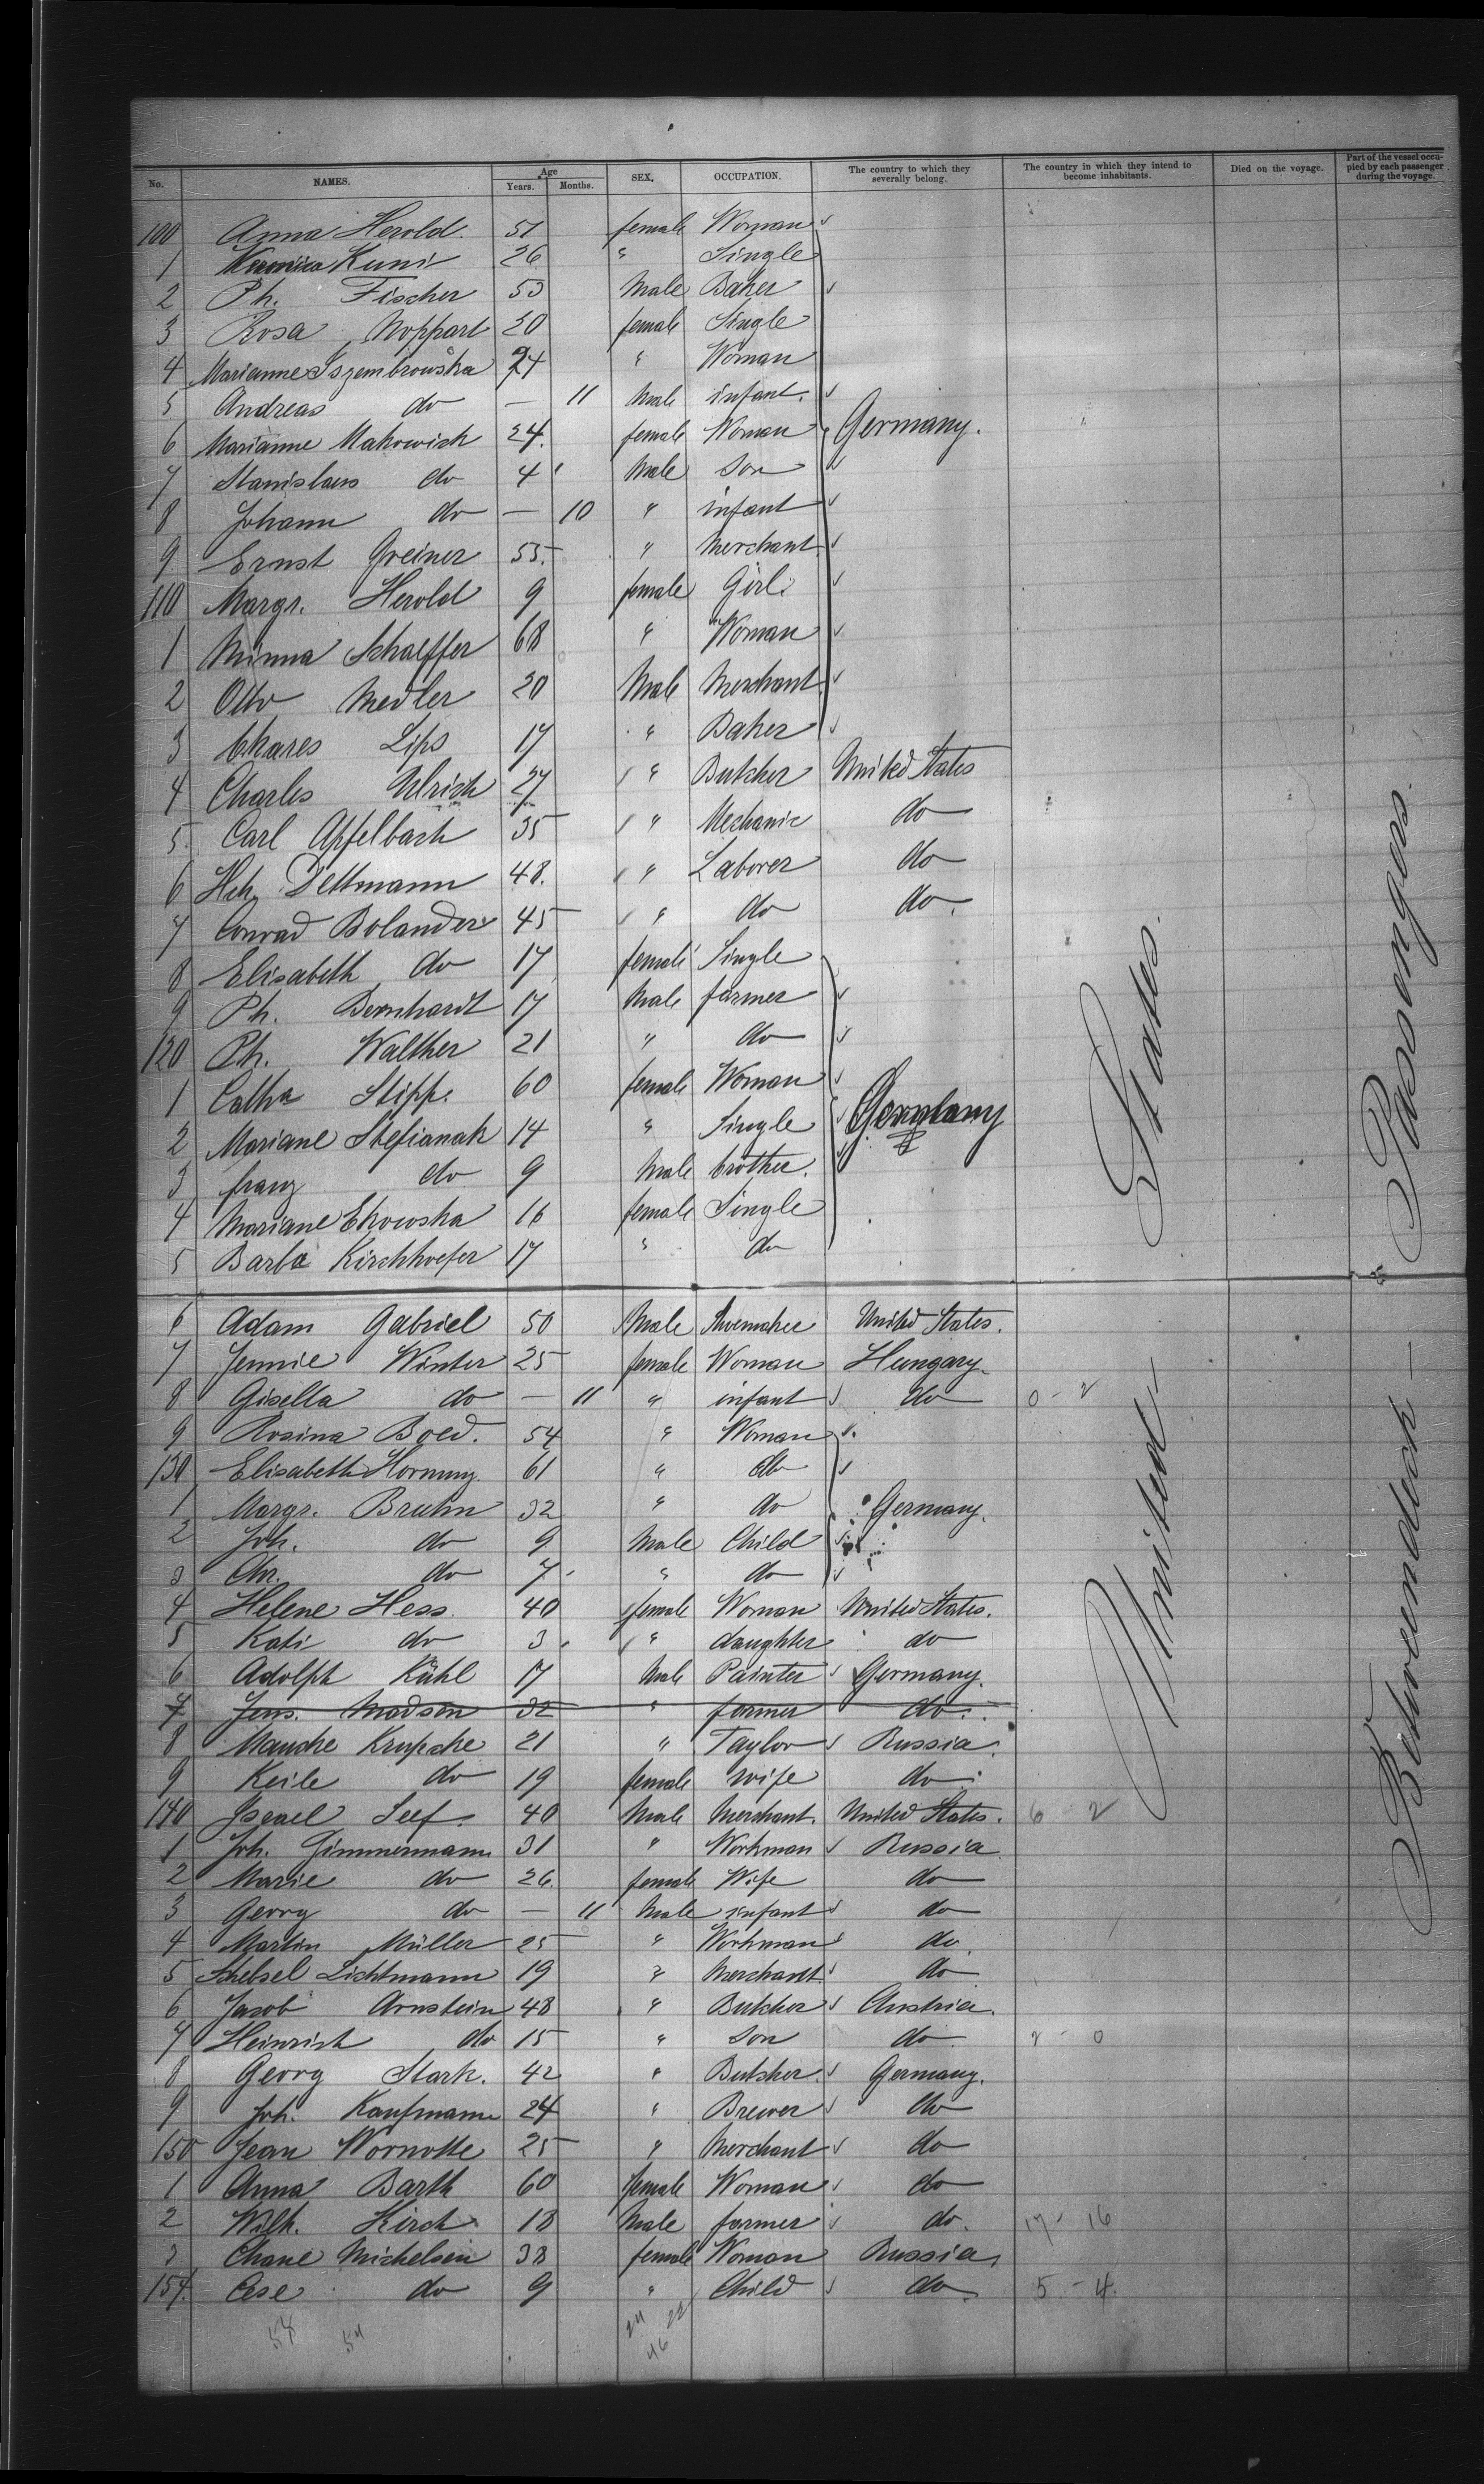 No. NAMES. Age Years. Months. SEX. OCCUPATION. The country to which they severally belong. The country in which they intend to become inhabitants. Died on the voyage. Part of the vessel occupied by each passenger during the voyage.
100 Anna Herold. 51 female Woman
1 Kuni 26 " Single
2 Ph. Fischer 53 Male Baker
3 Rosa Noppart 20 female Single
4 Marianne Iszembrowska 24 " Woman
5 Andreas do — 11 Male infant.
6 Marianne Makowich 24. female Woman Germany.
7 Stanislaus do 4 Male Son
8 Johann do — 10 " infant
9 Ernst Greiner 55. " Merchant
110 Margr. Herold 9 female Girl.
1 Minna Schaeffer 68 " Woman
2 Otto Medler 20 Male Merchant
3 Chares Lips 17 " Baker
4 Charles Ulrich 27 " Butcher United States
5. Carl Apfelbach 35 " Mechanic do
6 Hch. Dettmann 48. " Laborer do
7 Conrad Bolander 45 " do do.
8 Elisabeth do 17 female Single
9 Ph. Bernhardt 17 Male farmer
120 Ph. Walther 21 " do
1 Catha Stipp. 60 female Woman Germany
2 Mariane Stefianak 14 " Single
3 franz do 9 Male brother.
4 Mariane Ekowska 16 female Single
5 Barba Kirchhoefer 17 " do
6 Adam Gabriel 50 Male Shoemaker United States.
7 Jennie Winter 25 female Woman Hungary.
8 Gisella do — 11 " infant do 0 - 2
9 Rosina Boed. 54 " Woman
130 Elisabeth Hornung. 61 " do
1 Margr. Bruhn 32 " do Germany.
2 Joh. do 9 Male Child
3 Chr. do 7 " do
4 Helene Hess. 40 female Woman United States.
5 Kati do 3 " daughter do
6 Adolph Kühl 17 Male Painter Germany.
7 Jens. Madsen 32 " farmer do.
8 Mausche Krupsche 21 " Taylor Russia.
9 Keile do 19 female wife do
140 Israel Seef. 40 Male Merchant. United States. 6 2
1 Joh. Zimmermann 31 " Workman Russia
2 Marie do 26. female Wife do
3 Georg do — 11 Male infant do
4 Martin Müller 25 " Workman do.
5 Schebsel Lichtmann 19 " Merchant do
6 Jacob Arnstein 48 " Butcher Austria.
7 Heinrich do 15 " Son do 2 - 0
8 Georg Stark. 42 " Butcher. Germany.
9 Joh. Kaufmann 24 " Brewer do
150 Jean Wornotte 25 " Merchant do
1 Anna Barth 60 female Woman do
2 Wilh. Kirch 18 Male farmer do. 17 - 16
3 Chane Michelsen 38 female Woman Russia,
154. Cise do 9 " Child do 5 - 4.
58 54 24 22
46
United States.
Betweendeck - Passengers.